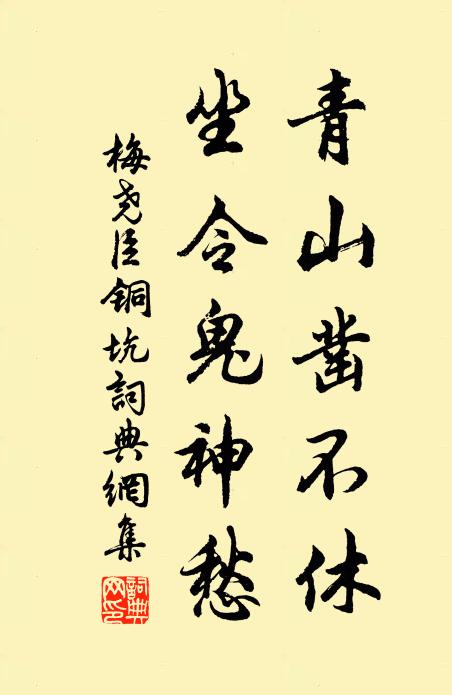 青山凿不休
坐令鬼神愁
梅尧臣铜坑詞典網集
詞典网印